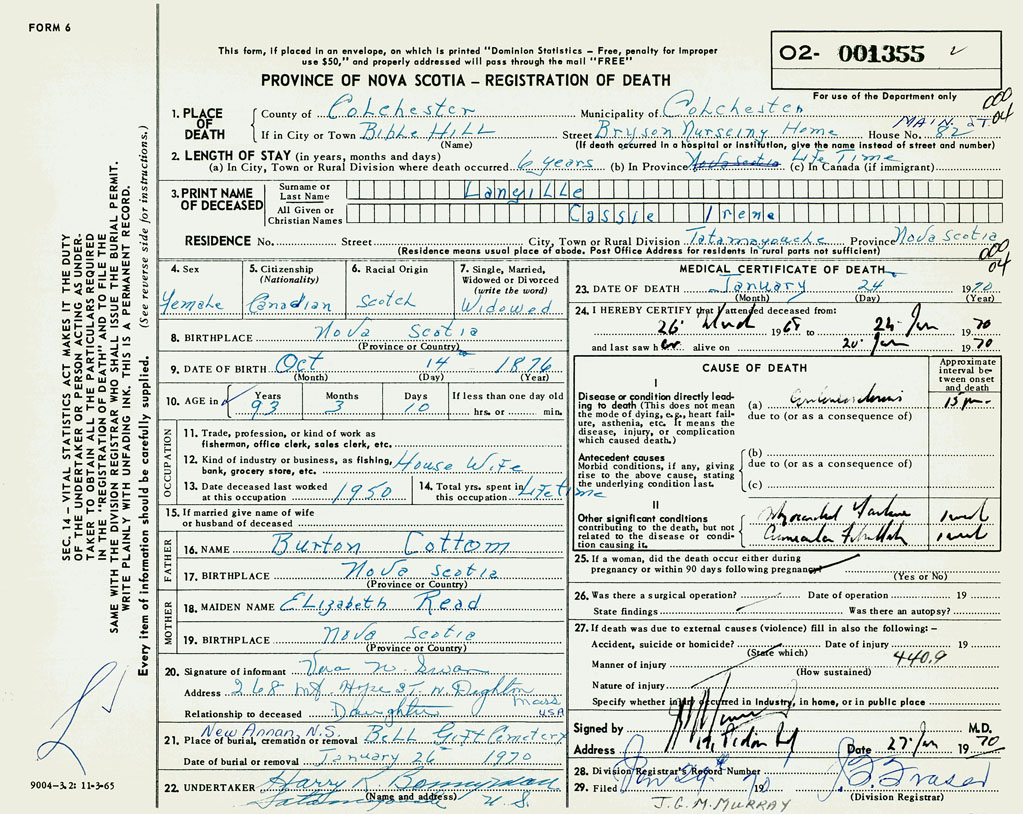 FORM 6
This form, if placed in an envelope, on which is printed "Dominion Statistics – Free, penalty for improper
use $50," and properly addressed will pass through the mail "FREE"
PROVINCE OF NOVA SCOTIA – REGISTRATION OF DEATH
O2- 001355
For use of the Department only
000
04
1. PLACE OF DEATH
County of Colchester Municipality of Colchester
MAIN ST.
If in City or Town Bible Hill Street Bryson Nurseing Home House No. 82
(Name) (If death occurred in a hospital or institution, give the name instead of street and number)
2. LENGTH OF STAY (in years, months and days)
(a) In City, Town or Rural Division where death occurred 6 years (b) In Province Nova Scotia Life Time (c) In Canada (if immigrant)
3. PRINT NAME OF DECEASED
Surname or Last Name Langille
All Given or Christian Names Cassie Irene
RESIDENCE No. Street City, Town or Rural Division Tatamagouche Province Nova Scotia
(Residence means usual place of abode. Post Office Address for residents in rural parts not sufficient)
000
04
4. Sex Female
5. Citizenship (Nationality) Canadian
6. Racial Origin Scotch
7. Single, Married, Widowed or Divorced (write the word) Widowed
8. BIRTHPLACE Nova Scotia
(Province or Country)
9. DATE OF BIRTH Oct 14 1876
(Month) (Day) (Year)
10. AGE in Years Months Days If less than one day old
93 3 10 hrs. or min.
OCCUPATION
11. Trade, profession, or kind of work as
fisherman, office clerk, sales clerk, etc.
12. Kind of industry or business, as fishing,
bank, grocery store, etc. House Wife
13. Date deceased last worked
at this occupation 1950
14. Total yrs. spent in
this occupation Lifetime
15. If married give name of wife
or husband of deceased
FATHER
16. NAME Burton Cottom
17. BIRTHPLACE Nova Scotia
(Province or Country)
MOTHER
18. MAIDEN NAME Elizabeth Read
19. BIRTHPLACE Nova Scotia
(Province or Country)
20. Signature of informant Vera N. Swan
Address 268 Mt. Hope St. N. Dighton
Mass USA
Relationship to deceased Daughter
New Annan, N.S.
21. Place of burial, cremation or removal Bell Gift Cemetery
Date of burial or removal January 26 1970
22. UNDERTAKER Harry K Bonnyman
(Name and address)
Tatamagouche N.S.
MEDICAL CERTIFICATE OF DEATH
23. DATE OF DEATH January 24 1970
(Month) (Day) (Year)
24. I HEREBY CERTIFY that I attended deceased from:
26 1968 to 24 Jan 1970
and last saw her alive on 20 Jan 1970
CAUSE OF DEATH
Approximate interval between onset and death
I
Disease or condition directly leading
to death (This does not mean
the mode of dying, e.g., heart failure,
asthenia, etc. It means the
disease, injury, or complication
which caused death.)
(a) 15
due to (or as a consequence of)
Antecedent causes
Morbid conditions, if any, giving
rise to the above cause, stating
the underlying condition last.
(b)
due to (or as a consequence of)
(c)
II
Other significant conditions
contributing to the death, but not
related to the disease or condition
causing it.
Myocardial Failure 1 week
Auricular Fibrillation 1 week
25. If a woman, did the death occur either during
pregnancy or within 90 days following pregnancy
(Yes or No)
26. Was there a surgical operation? Date of operation 19
State findings Was there an autopsy?
27. If death was due to external causes (violence) fill in also the following: –
Accident, suicide or homicide? Date of injury 19
(State which) 440.9
Manner of injury (How sustained)
Nature of injury
Specify whether injury occurred in industry, in home, or in public place
Signed by M.D.
Address Date 27 Jan 1970
28. Division Registrar's Record Number
29. Filed Jan 29 1970 Fraser
(Division Registrar)
J. G. M. MURRAY
SEC. 14 – VITAL STATISTICS ACT MAKES IT THE DUTY
OF THE UNDERTAKER OR PERSON ACTING AS UNDER-
TAKER TO OBTAIN ALL THE PARTICULARS REQUIRED
IN THE "REGISTRATION OF DEATH" AND TO FILE THE
SAME WITH THE DIVISION REGISTRAR WHO SHALL ISSUE THE BURIAL PERMIT.
WRITE PLAINLY WITH UNFADING INK. THIS IS A PERMANENT RECORD.
Every item of information should be carefully supplied. (See reverse side for instructions.)
9004–3.2: 11-3-65